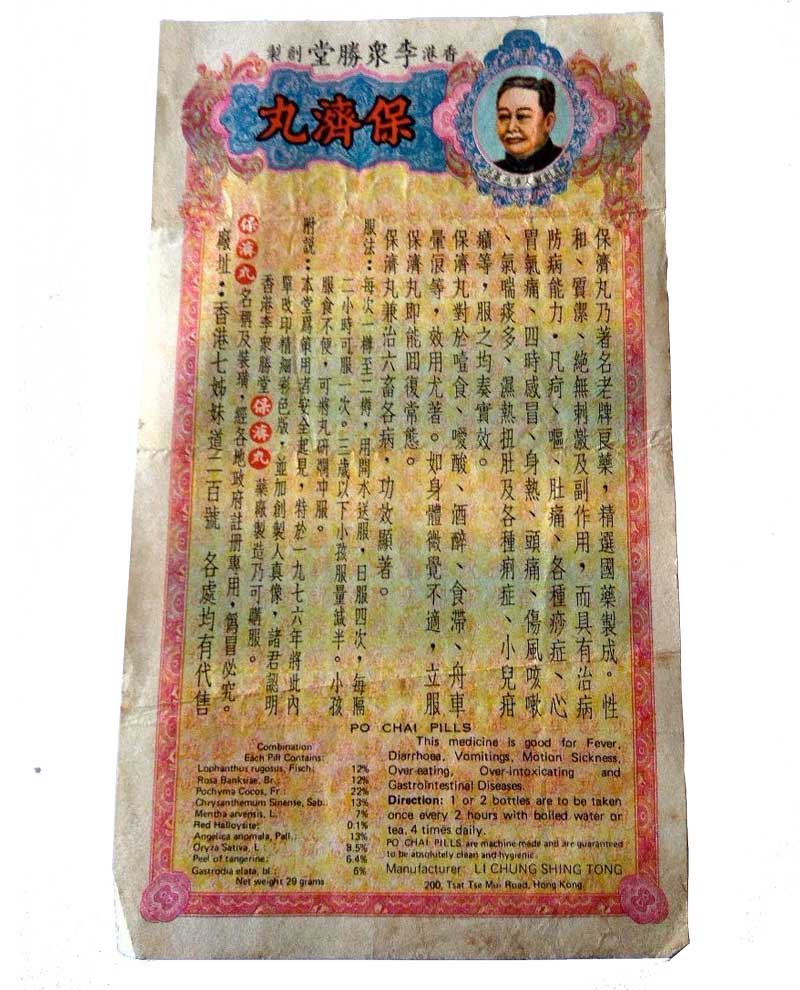 香港李衆勝堂創製
保濟丸
保濟丸乃著名老牌良藥，精選國藥製成。性
和、質潔、絕無刺激及副作用，而具有治病
防病能力，凡疴、嘔、肚痛、各種痧症、心
胃氣痛、四時感冒、身熱、頭痛、傷風咳嗽
、氣喘痰多、濕熱扭肚及各種痢症、小兒疳
癪等，服之均奏實效。
保濟丸對於噎食、噯酸、酒醉、食滯、舟車
暈浪等，效用尤著。如身體微覺不適，立服
保濟丸即能回復常態。
保濟丸兼治六畜各病，功效顯著。
服法：每次一樽至二樽，用開水送服，日服四次，每隔
二小時可服一次。三歲以下小孩服量減半。小孩
服食不便，可將丸研爛冲服。
附説：本堂爲策用者安全起見，特於一九七六年將此內
單改印精細彩色版，並加創製人真像，諸君認明
香港李衆勝堂保濟丸藥廠製造乃可購服。
保濟丸名稱及裝璜，經各地政府註册專用，僞冒必究。
廠址：香港七姊妹道二百號　各處均有代售
PO CHAI PILLS
Combination
Each Pill Contains:
Lophanthus rugosus, Fisch: 12%
Rosa Banksiae, Br.: 12%
Pochyma Cocos, Fr.: 22%
Chrysanthemum Sinense, Sab.: 13%
Mentha arvensis, L.: 7%
Red Halloysite: 0.1%
Angelica anomala, Pall.: 13%
Oryza Sativa, L.: 8.5%
Peel of tangerine: 6.4%
Gastrodia elata, bl.: 6%
Net weight 29 grams
This medicine is good for Fever,
Diarrhoea, Vomitings, Motion Sickness,
Over-eating, Over-intoxicating and
Gastrolntestinal Diseases.
Direction: 1 or 2 bottles are to be taken
once every 2 hours with boiled water or
tea, 4 times daily.
PO CHAI PILLS are machine-made and are guaranteed
to be absolutely clean and hygienic.
Manufacturer: LI CHUNG SHING TONG
200, Tsat Tse Mui Road, Hong Kong.